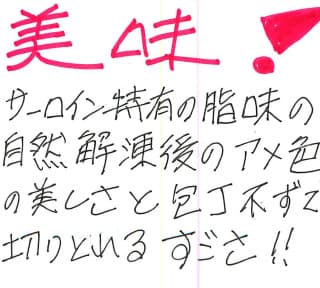 美味!
サーロイン特有の脂味の
自然解凍後のアメ色
の美しさと包丁不ずに
切りとれるすごさ!!